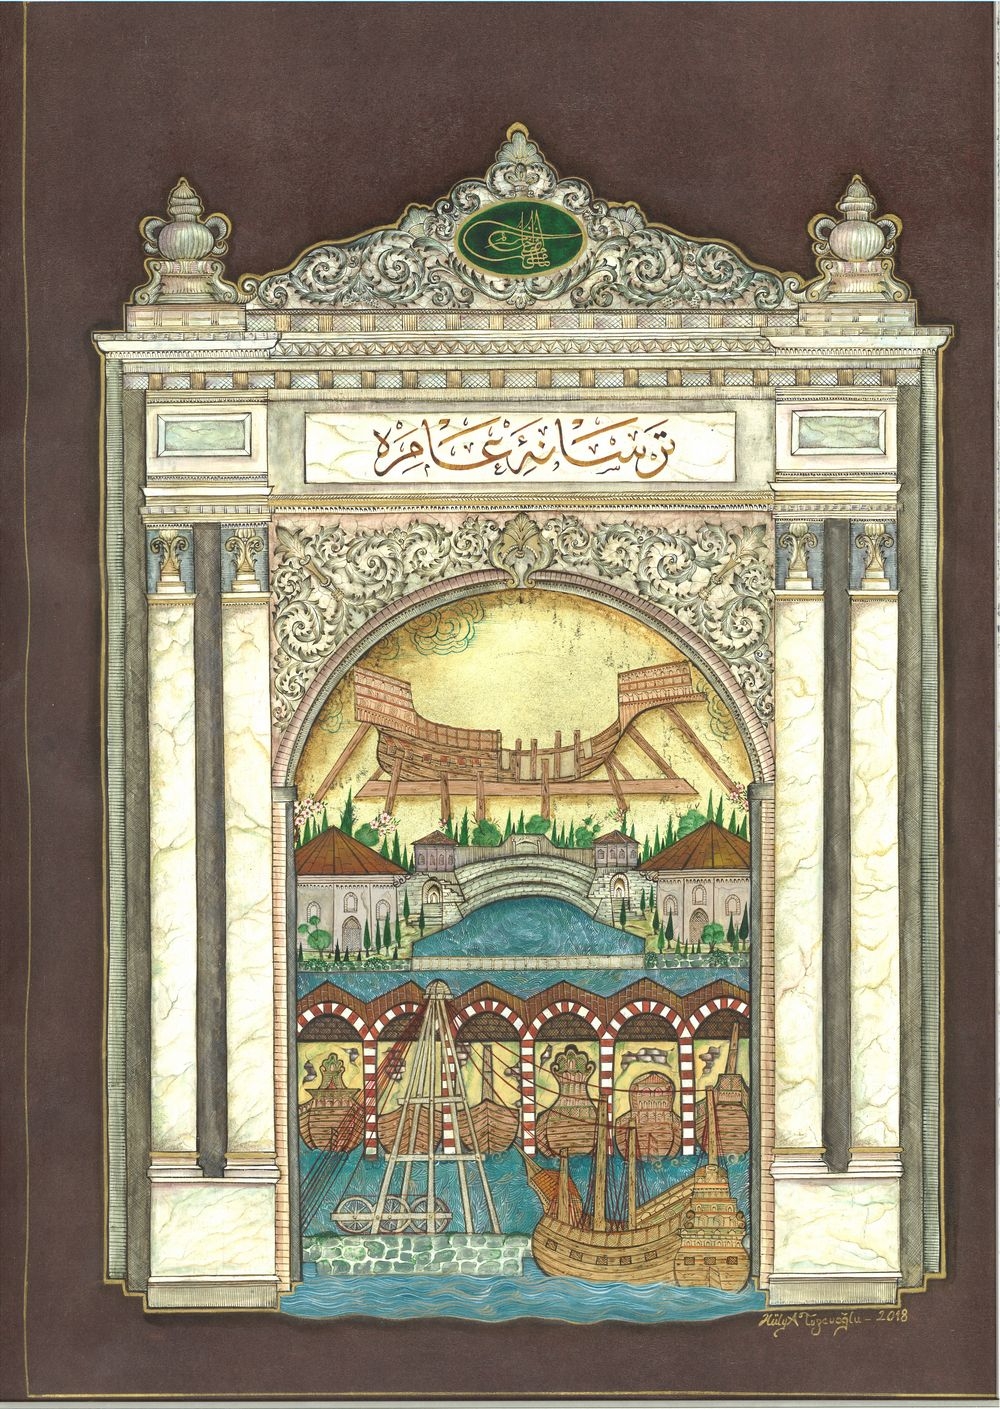 ترسانهٔ عامره
Hülya Tözevoğlu - 2018